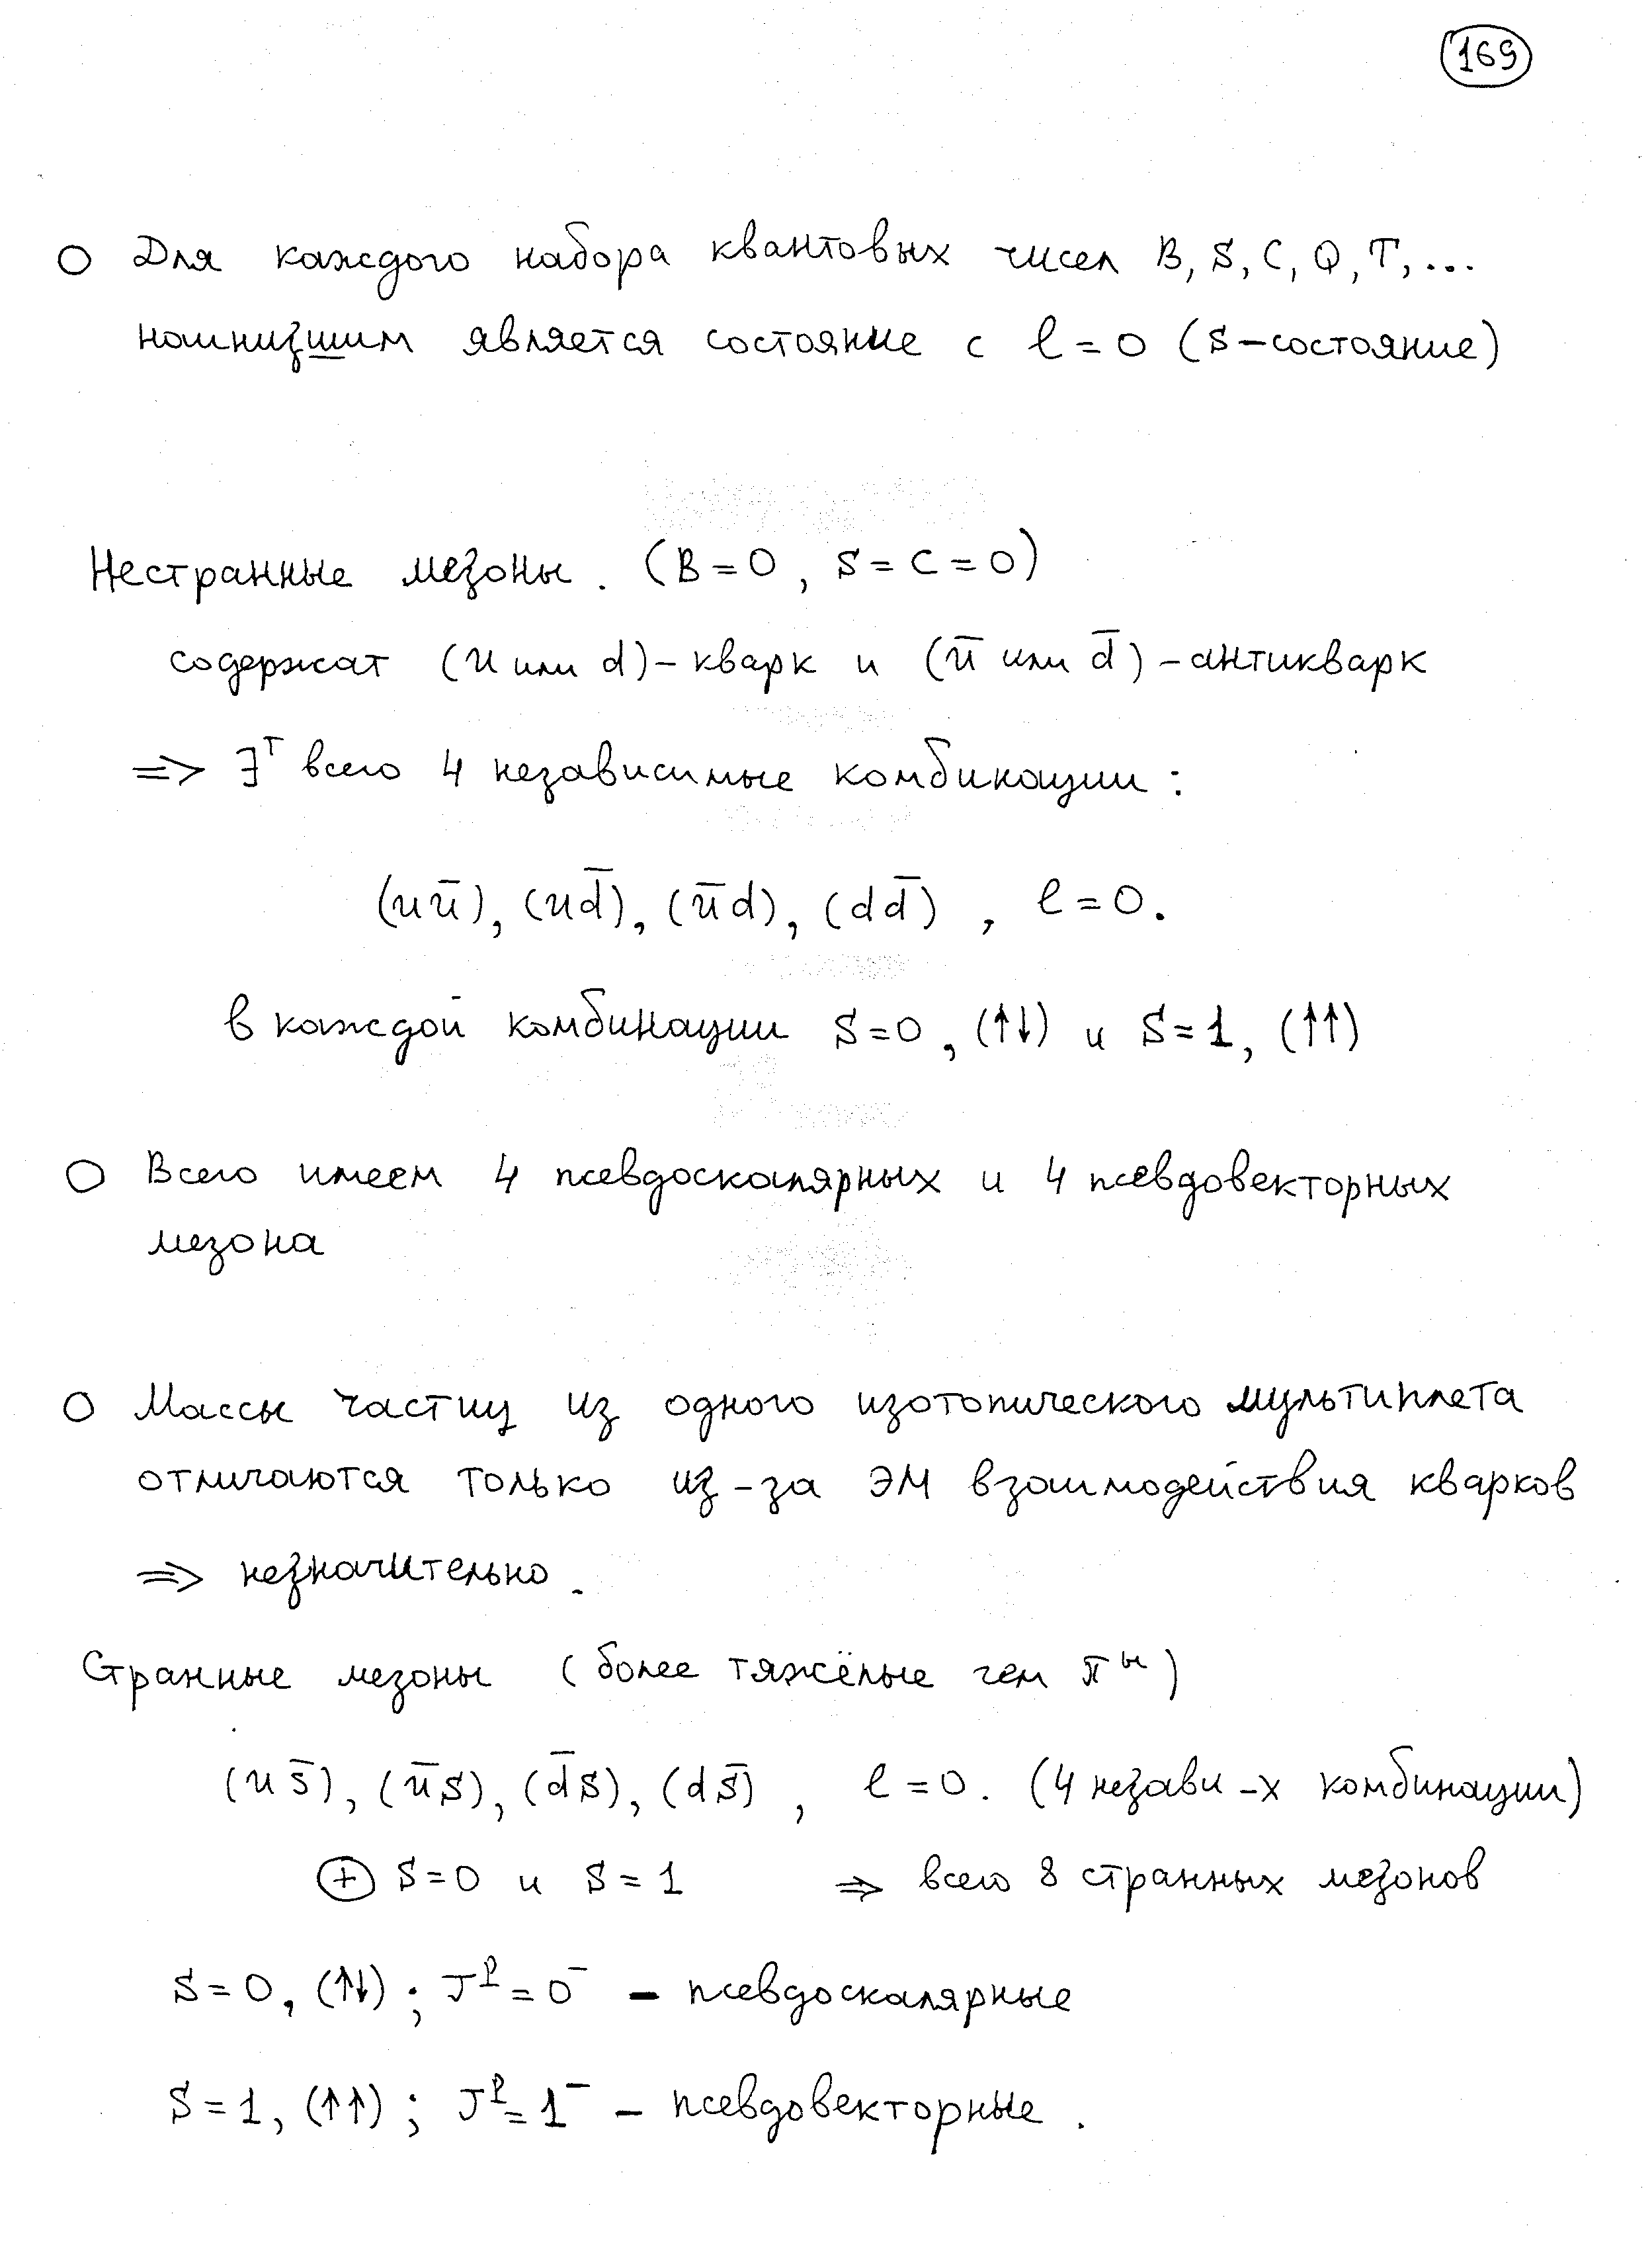 169
○ Для каждого набора квантовых чисел B, S, C, Q, T, ...
наинизшим является состояние с l = 0 (s-состояние)
Нестранные мезоны. (B = 0, S = C = 0)
содержат (u или d)-кварк и (ū или d̄)-антикварк
=> ∃ᵀ всего 4 независимые комбинации:
(uū), (ud̄), (ūd), (dd̄), l = 0.
в каждой комбинации S = 0, (↑↓) и S = 1, (↑↑)
○ Всего имеем 4 псевдоскалярных и 4 псевдовекторных
мезона
○ Массы частиц из одного изотопического мультиплета
отличаются только из-за ЭМ взаимодействия кварков
=> незначительно.
Странные мезоны (более тяжёлые чем πы)
(us̄), (ūs), (d̄s), (ds̄), l = 0. (4 незави-х комбинации)
⊕ S = 0 и S = 1 => всего 8 странных мезонов
S = 0, (↑↓); Jᴾ = 0⁻ – псевдоскалярные
S = 1, (↑↑); Jᴾ = 1⁻ – псевдовекторные.